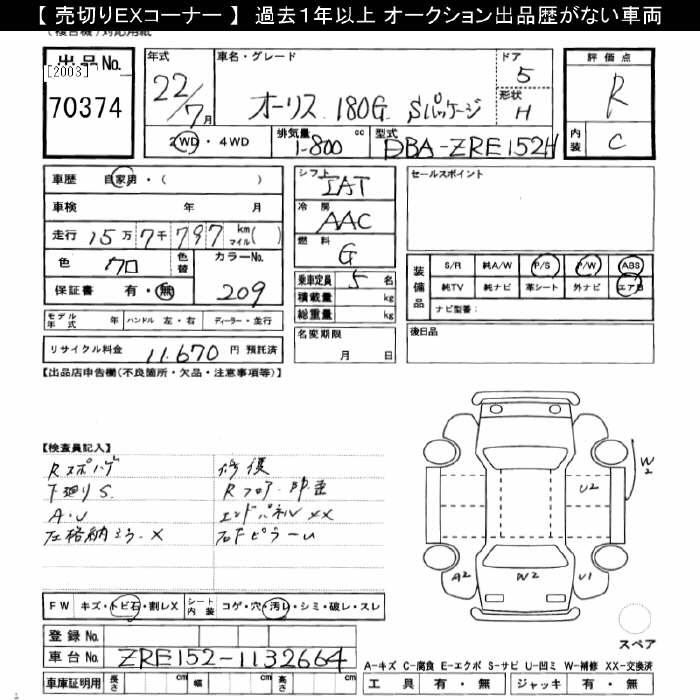 【 売切りEXコーナー 】 過去1年以上 オークション出品歴がない車両
出品No.
[2003]
70374
年式
22/7月
車名・グレード
オーリス 180G Sパッケージ
ドア
5
形状
H
評価点
R
内装
C
2WD・4WD
排気量
1-800 cc
型式
DBA-ZRE152H
車歴 自家用・( )
車検 年 月
走行 15万7千797 km マイル( )
色 クロ 色替
カラーNo. 209
保証書 有・無
モデル年式 年 ハンドル 左・右 ディーラー・並行
リサイクル料金 11,670 円 預託済
シフト
IAT
冷房
AAC
燃料
G
乗車定員 5 名
積載量 kg
総重量 kg
名変期限
月 日
セールスポイント
装備品
S/R 純A/W P/S P/W ABS
純TV 純ナビ 革シート 外ナビ エアB
ナビ型番:
後日品
【出品店申告欄(不良箇所・欠品・注意事項等)】
【検査員記入】
Rスポハゲ
下廻りS
A・U
左格納ミラーX
修復
Rフロア 凹歪
エンドパネルXX
右下ピラーU
W2
U2
A2
W2
U1
FW キズ・トビ石・割レX
シート内装 コゲ・穴・汚レ・シミ・破レ・スレ
登録No.
車台No. ZRE152-1132664
車庫証明用 長さ cm 幅 cm 高さ cm
スペア
A-キズ C-腐食 E-エクボ S-サビ U-凹ミ W-補修 XX-交換済
工具 有・無 ジャッキ 有・無